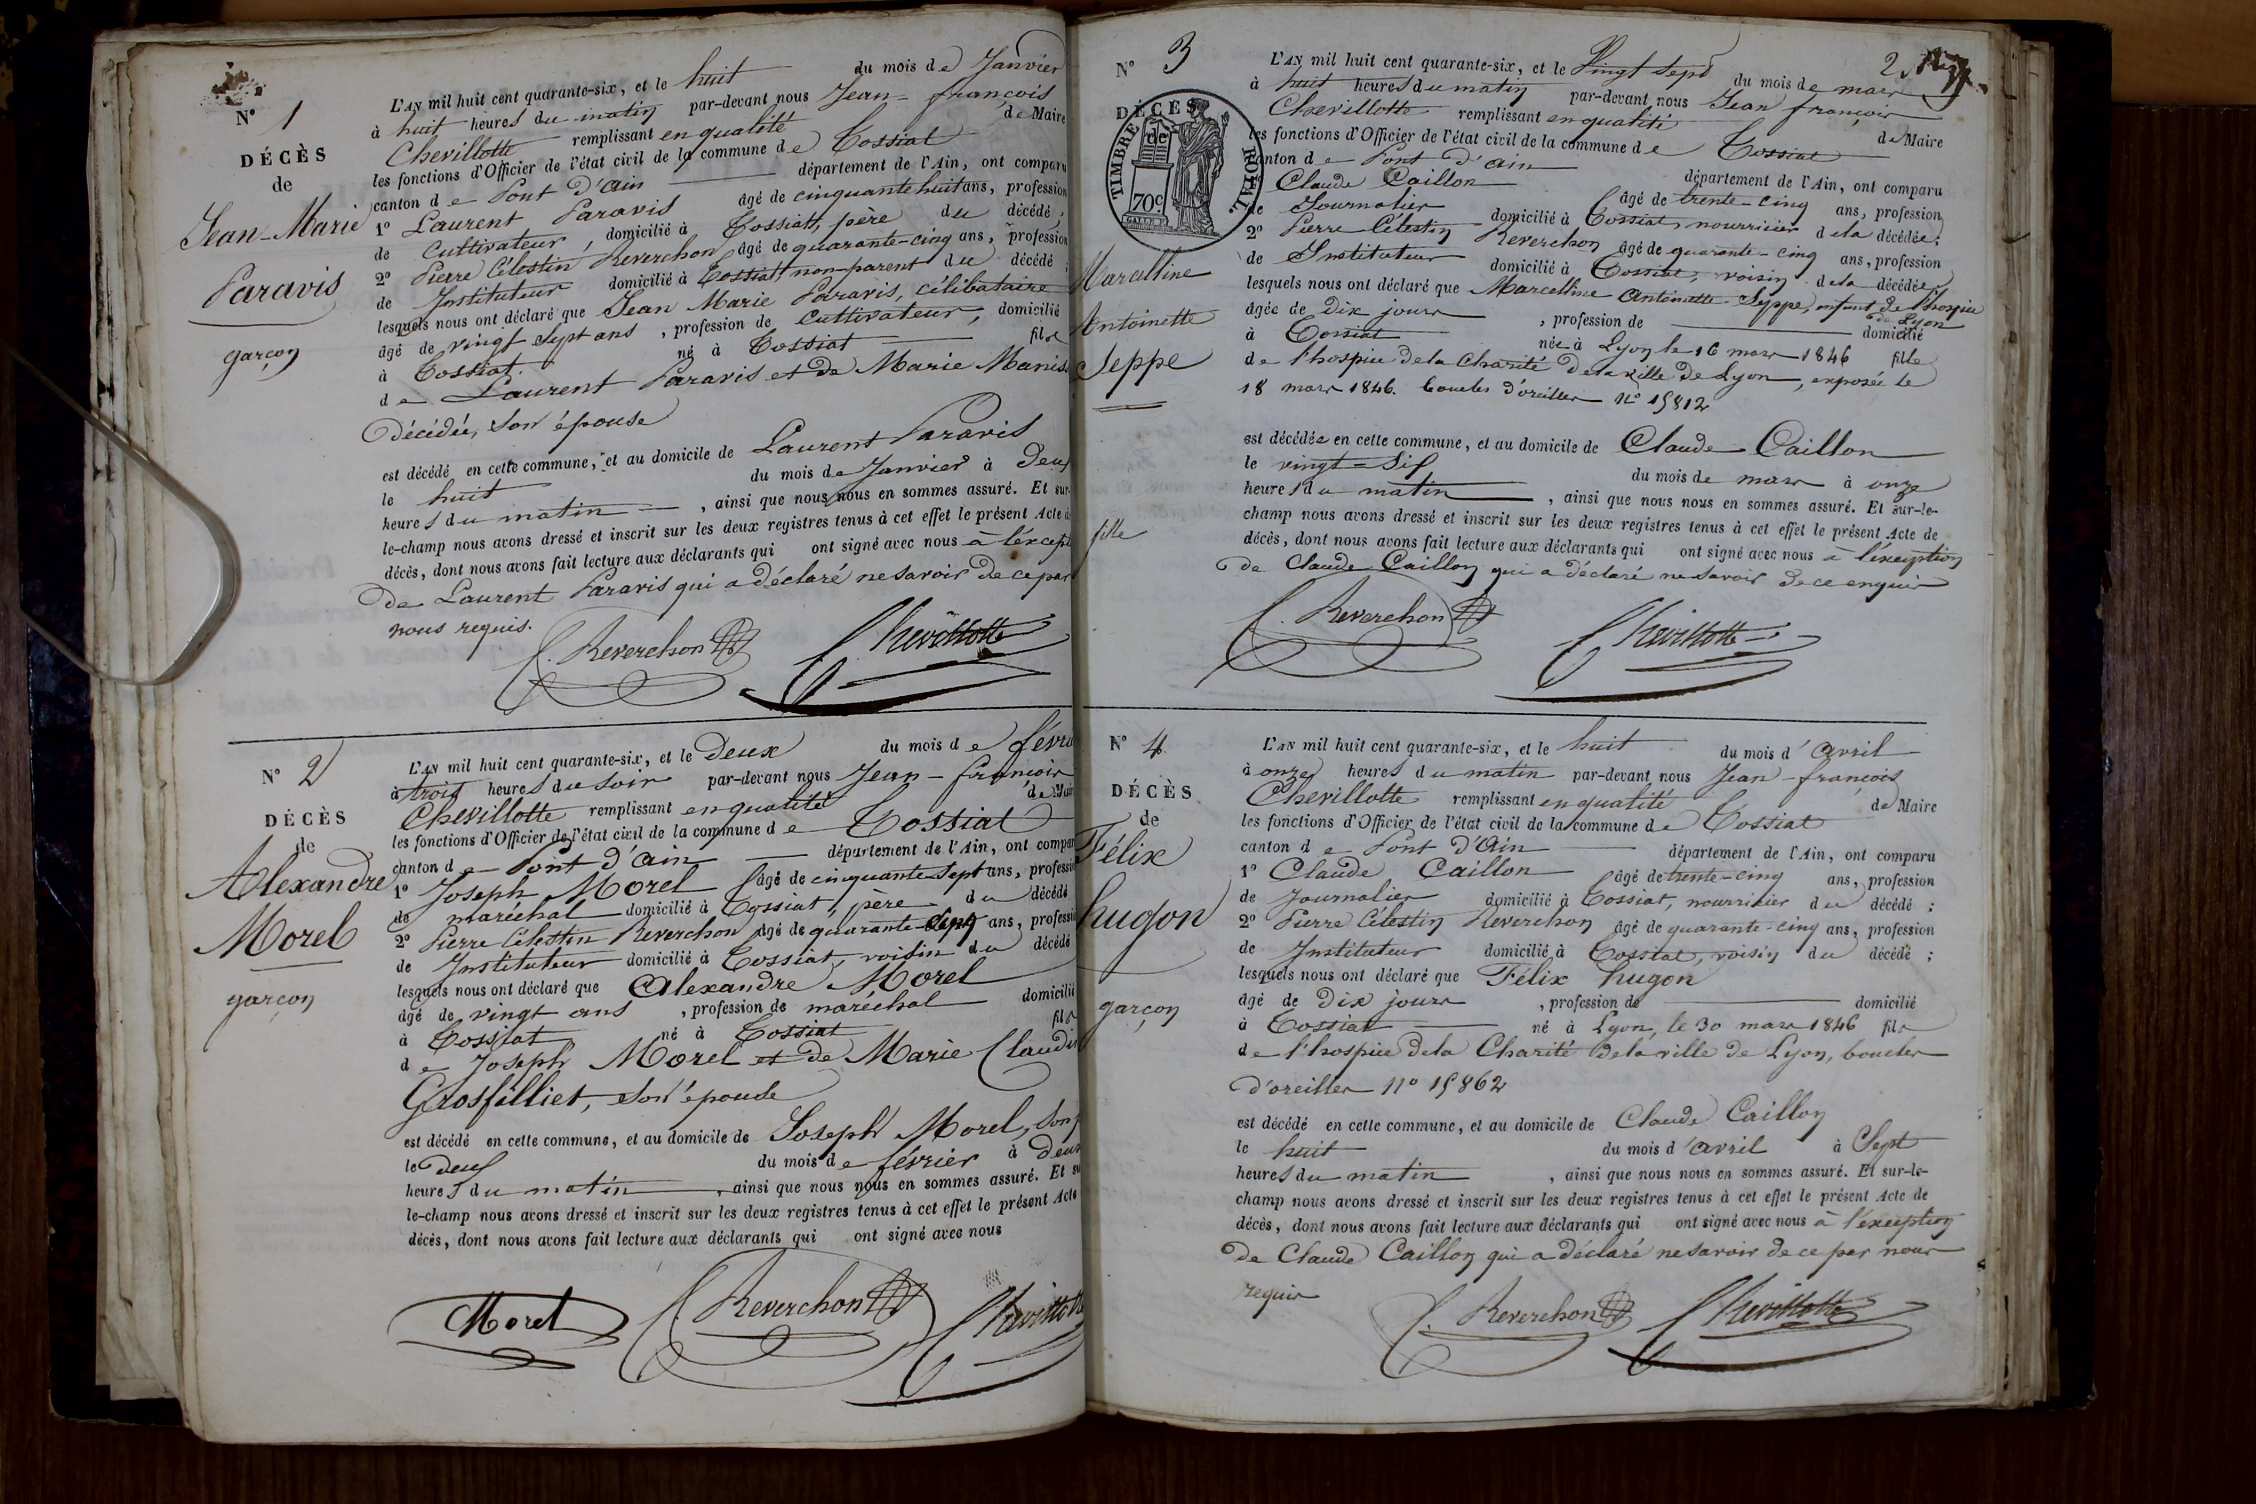 N° 1
DÉCÈS
de
Jean-Marie
Paravis
garçon
L'AN mil huit cent quarante-six, et le huit du mois de Janvier
à huit heures du matin par-devant nous Jean-françois
Chevillotte remplissant en qualité de Maire
les fonctions d'Officier de l'état civil de la commune de Tossiat
canton de Pont d'ain département de l'Ain, ont comparu
1° Laurent Paravis âgé de cinquante huit ans, profession
de cultivateur, domicilié à Tossiat, père du décédé,
2° Pierre Célestin Reverchon âgé de quarante-cinq ans, profession
de Instituteur domicilié à Tossiat non-parent du décédé ;
lesquels nous ont déclaré que Jean Marie Paravis, célibataire
âgé de vingt sept ans, profession de cultivateur, domicilié
à Tossiat. né à Tossiat fils
de Laurent Paravis et de Marie
Décédée, son épouse
est décédé en cette commune, et au domicile de Laurent Paravis
le huit du mois de Janvier à Deux
heures du matin, ainsi que nous nous en sommes assuré. Et sur-
le-champ nous avons dressé et inscrit sur les deux registres tenus à cet effet le présent Acte de
décès, dont nous avons fait lecture aux déclarants qui ont signé avec nous à l'except
de Laurent Paravis qui a déclaré ne savoir De ce par
nous requis.
C. Reverchon Chevillotte
N° 2
DÉCÈS
de
Alexandre
Morel
garçon
L'AN mil huit cent quarante-six, et le Deux du mois de févri
à trois heures du soir par-devant nous Jean-françois
Chevillotte remplissant en qualité de Maire
les fonctions d'Officier de l'état civil de la commune de Tossiat
canton de Pont d'ain département de l'Ain, ont comparu
1° Joseph Morel âgé de cinquante sept ans, profession
de maréchal domicilié à Tossiat, père du décédé
2° Pierre Célestin Reverchon âgé de quarante-cinq ans, profession
de Instituteur domicilié à Tossiat, voisin du décédé
lesquels nous ont déclaré que Alexandre Morel
âgé de vingt ans, profession de maréchal domicilié
à Tossiat né à Tossiat fils
de Joseph Morel et de Marie Claudi
Grosfilliet, son épouse
est décédé en cette commune, et au domicile de Joseph Morel, son p
le Deux du mois de février à deux
heures du matin, ainsi que nous nous en sommes assuré. Et su
le-champ nous avons dressé et inscrit sur les deux registres tenus à cet effet le présent Acte
décès, dont nous avons fait lecture aux déclarants qui ont signé avec nous
Morel C. Reverchon Chevillotte
2
N° 3
DÉCÈS
de
TIMBRE ROYAL.
70c
Marcelline
Antoinette
Seppe
fille
L'AN mil huit cent quarante-six, et le Vingt Sept du mois de mars
à huit heures du matin par-devant nous Jean françois
Chevillotte remplissant en qualité de Maire
les fonctions d'Officier de l'état civil de la commune de Tossiat
canton de Pont d'ain département de l'Ain, ont comparu
Claude Caillon âgé de trente-cinq ans, profession
de Journalier domicilié à Tossiat, nourricier de la décédée ;
2° Pierre Célestin Reverchon âgé de quarante-cinq ans, profession
de Instituteur domicilié à Tossiat, voisin de la décédée
lesquels nous ont déclaré que Marcelline Antoinette Seppe, enfant de l'hospice
de Lyon
âgée de Dix jours, profession de domicilié
à Tossiat née à Lyon le 16 mars 1846 fille
de l'hospice de la Charité de la ville de Lyon, exposée le
18 mars 1846. boucles d'oreilles n° 15812
est décédée en cette commune, et au domicile de Claude Caillon
le vingt-six du mois de mars à onze
heures du matin, ainsi que nous nous en sommes assuré. Et sur-le-
champ nous avons dressé et inscrit sur les deux registres tenus à cet effet le présent Acte de
décès, dont nous avons fait lecture aux déclarants qui ont signé avec nous à l'exception
de Claude Caillon qui a déclaré ne savoir de ce enquis
C. Reverchon Chevillotte
N° 4
DÉCÈS
de
Félix
hugon
garçon
L'AN mil huit cent quarante-six, et le huit du mois d'avril
à onze heures du matin par-devant nous Jean-françois
Chevillotte remplissant en qualité de Maire
les fonctions d'Officier de l'état civil de la commune de Tossiat
canton de Pont d'Ain département de l'Ain, ont comparu
1° Claude Caillon âgé de trente-cinq ans, profession
de Journalier domicilié à Tossiat, nourricier du décédé ;
2° Pierre Célestin Reverchon âgé de quarante-cinq ans, profession
de Instituteur domicilié à Tossiat, voisin du décédé ;
lesquels nous ont déclaré que Félix hugon
âgé de Dix jours, profession de domicilié
à Tossiat né à Lyon, le 30 mars 1846 fils
de l'hospice de la Charité de la ville de Lyon, boucles
d'oreilles n° 15862
est décédé en cette commune, et au domicile de Claude Caillon
le huit du mois d'avril à Sept
heures du matin, ainsi que nous nous en sommes assuré. Et sur-le-
champ nous avons dressé et inscrit sur les deux registres tenus à cet effet le présent Acte de
décès, dont nous avons fait lecture aux déclarants qui ont signé avec nous à l'exception
de Claude Caillon qui a déclaré ne savoir de ce par nous
requis
C. Reverchon Chevillotte